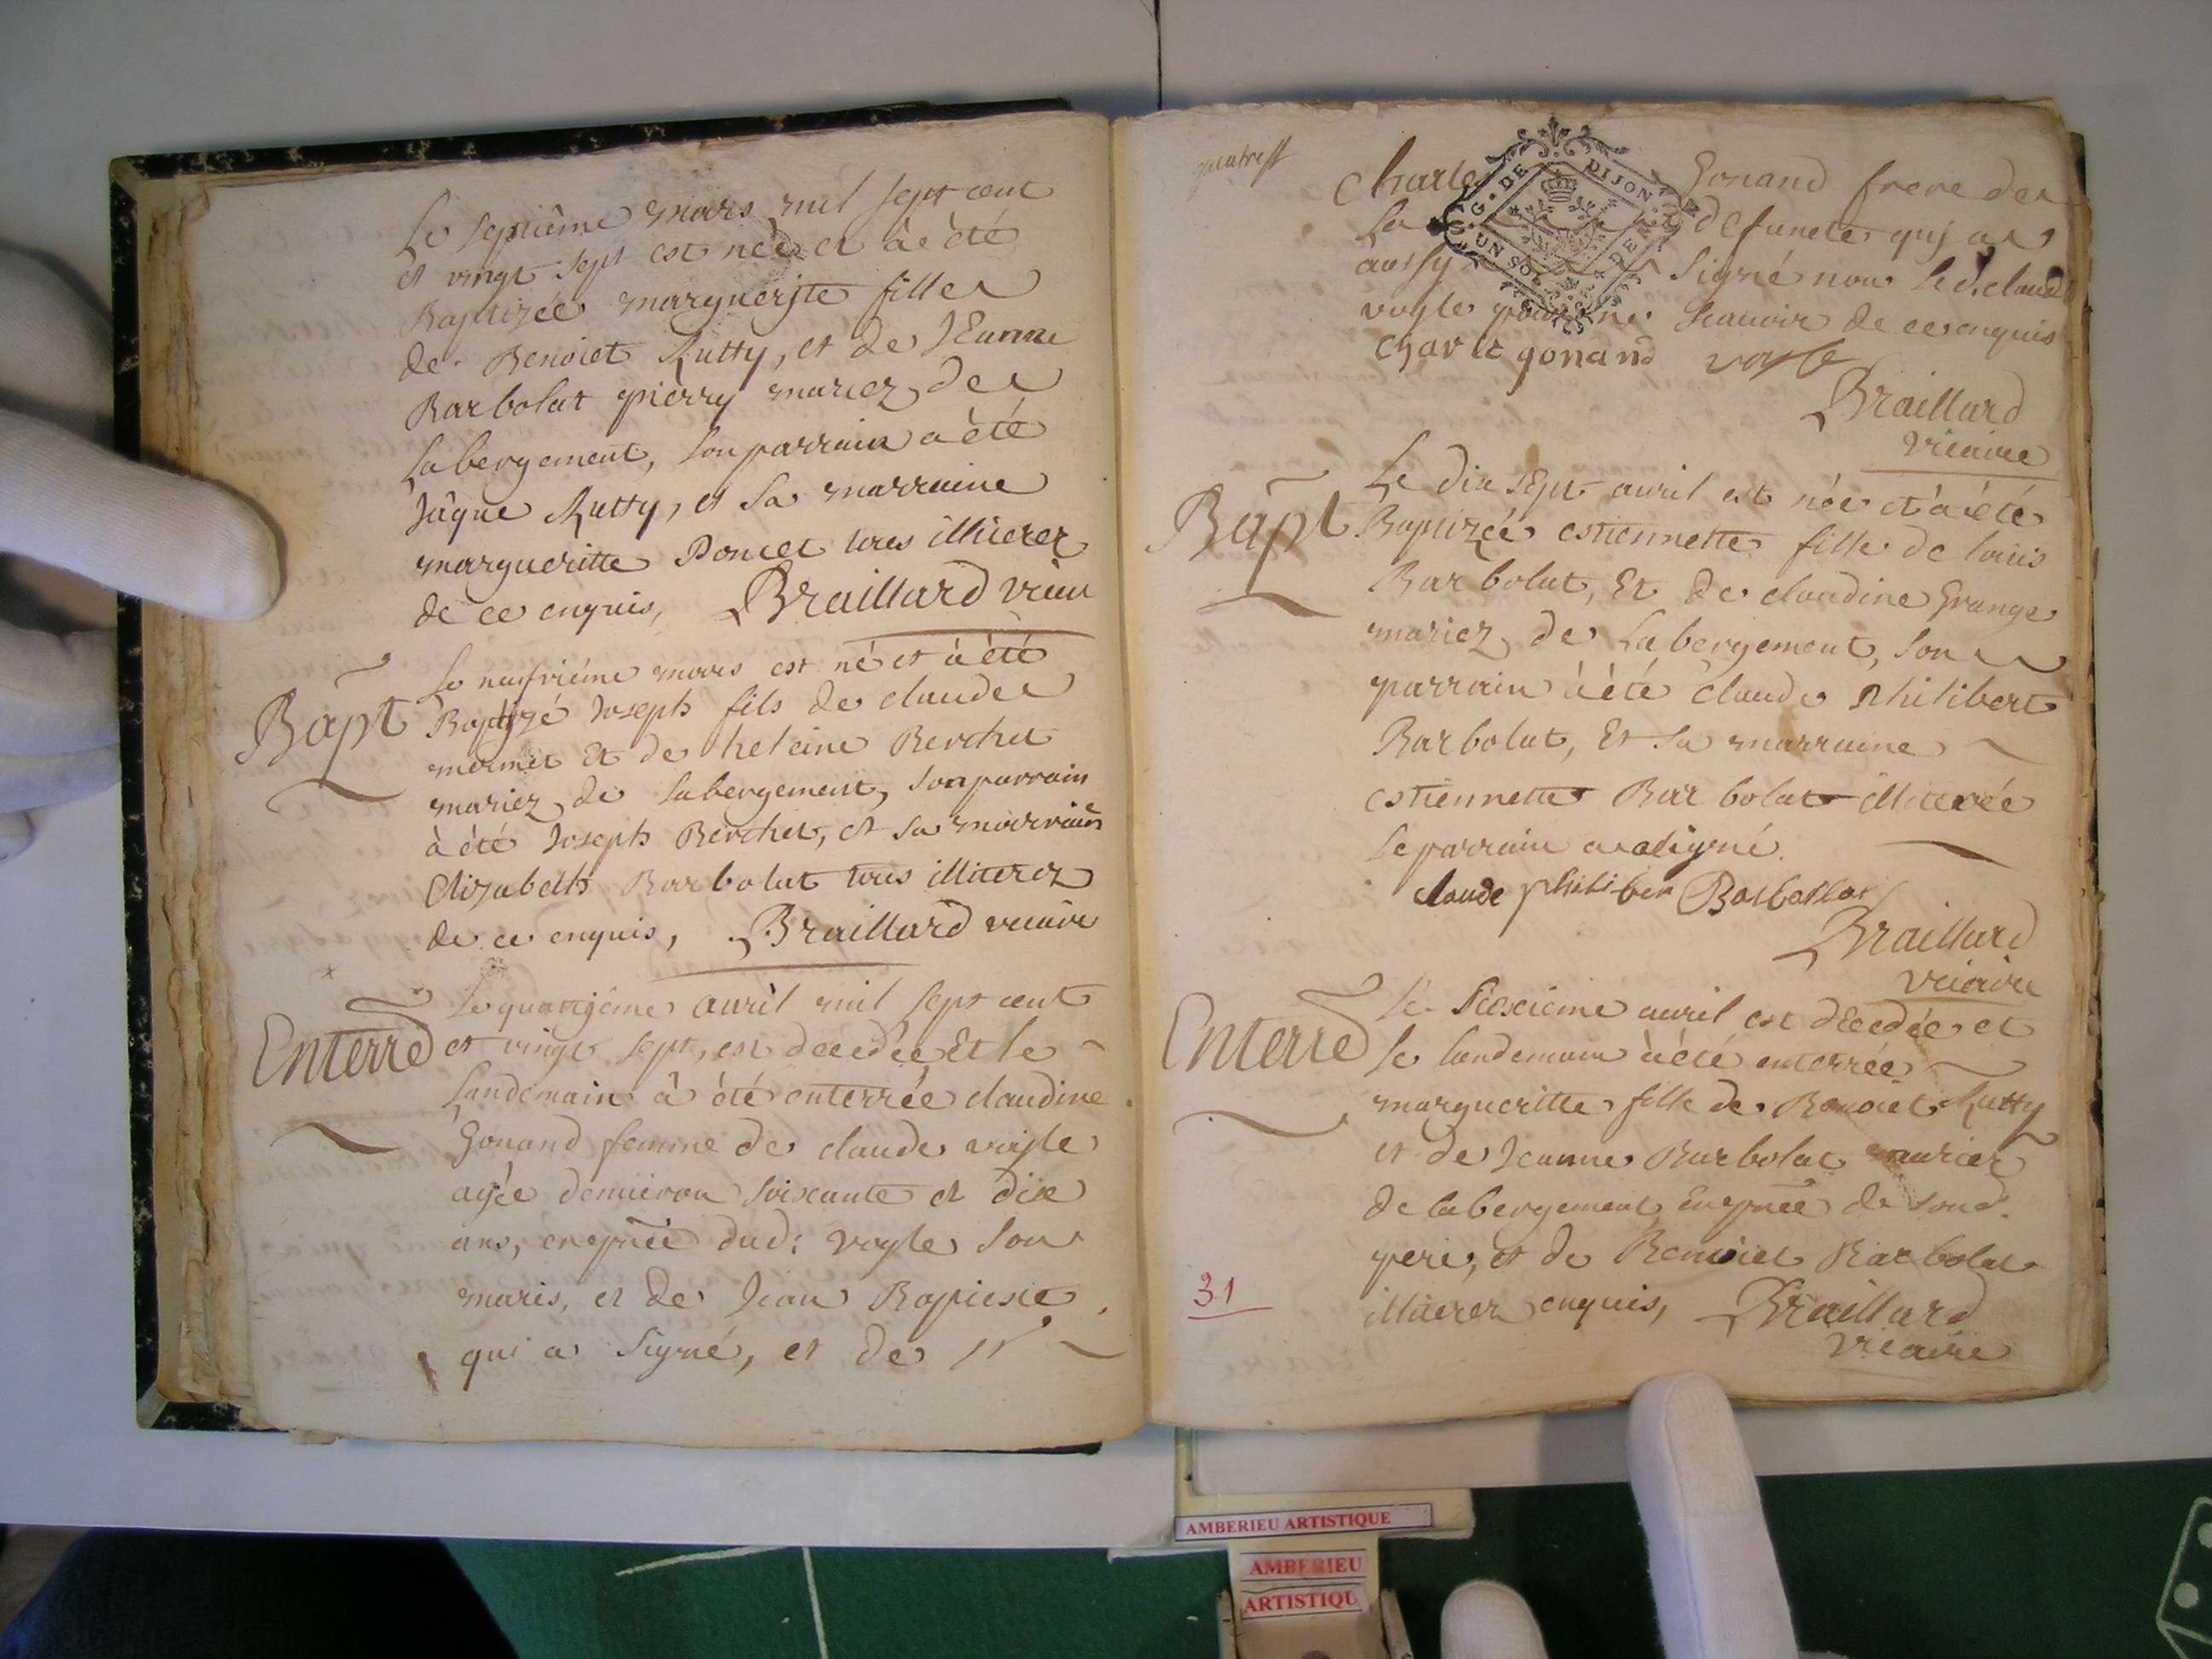 Le septiême mars mil sept cent
et vingt sept est née et à été
Baptizée marguerjte fille
de Benoiet Rutty, et de JEanne
Barbolat pierry mariez de
Labergement, son parrain a été
Jâque Rutty, et sa marraine
margueritte Poncet tous illiterez
de ce enquis, Braillard vicai
Bapt
Le neufvième mars est né et à été
Baptizé Joseph fils de claude
mermet Et de heleine Berchet
mariez de Labergement, son parrain
à été Joseph Berchet, et sa marrain
Elizabeth Barbolat tous illiterez
de ce enquis, Braillard vicaire
Enterré
Le quatrjème avril mil sept cent
et vingt sept, est decedée Et le
Landemain à été enterrée claudine
Gonand femme de claude voyle
agée denviron soixante et dix
ans, en pñce dud: voyle son
maris, et de Jean Bapiste
qui a signé, et de
Charle Gonand frere de
La defuncte qui a
aussy signé non Led. claude
voyle pour ne scauoir de ce enquis
Charle gonand voyle
Braillard
vicaire
G. DE DIJON
UN SOL
Bapt
Le dix sept avril est née et à été
Baptizée estiennette fille de louis
Barbolat, Et de claudine Grange
mariez de Labergement, son
parrain à été claude philibert
Barbolat, Et sa marraine
estiennette Barbolat illiterée
le parrain a signé.
claude philiber Barbollat
Braillard
vicaire
Enterré
Le Sixcieme avril est decedée et
le landemain à été enterrée
margueritte fille de Benoiet Rutty
et de Jeanne Barbolat mariez
de labergement en pñce de sond.
pere, et de Benoiet Barbolat
illiterez enquis, Braillard
vicaire
31
AMBERIEU ARTISTIQUE
AMBERIEU
ARTISTIQU